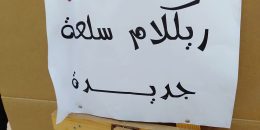 ريكلام سلعة
جديدة